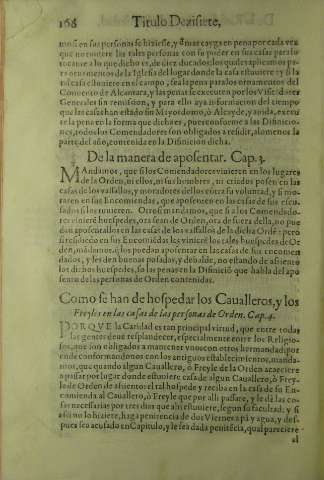 168 Titulo Dezisiete,
mos en sus personas se hiziesse, y que nos cargas en pena por cada vez
que no touiere las tales personas con su poder en sus casas para lo
tocante a lo que dicho es, de diez ducados: los quales aplicamos pa-
ra ornamentos de la Iglesia del lugar donde la casa estuuiere: y si la
tal casa estuuiere en el campo, sea la pena para los ornamentos del
Conuento de Alcantara, y las penas se executen por los Visitadores
Generales sin remission, y para ello aya informacion del tiempo
que las casas han estado sin Mayordomo, ò Alcayde, y anida, execu
te la pena en la forma que dicha es, pues conforme a las Difinicio-
nes, todos los Comendadores son obligados a residir, alomenos la
parte del año, contenida en la Difinicion dicha.
De la manera de aposentar. Cap. 3.
MAndamos, que si los Comendadores viuieren en los lugares
de la Orden, ni ellos, ni sus hombres, ni criados posen en las
casas de los vassallos, y moradores dellos contra su voluntad, y si mo-
raren en sus Encomiendas, que aposenten en las casas de sus escu-
sados si los tuuieren. Otrosi mandamos, que si a los Comendado-
res viniere huespedes, ora sean de Orden, ora de fuera della, no pue
dan aposentallos en las casas de los vassallos de la dicha Ordē: pero
si residiendo en sus Encomiendas les vinierē los tales huespedes de Or-
den, mādamos, q̃ los puedan aposentar en las casas de sus encomen
dados, y les den buenas posadas, y debalde, no estando de assiento
los dichos huespedes, so las penas en la Difinició que habla del apo
sento de las personas de Orden contenidas.
Como se han de hospedar los Caualleros, y los
Freyles en las casas de las personas de Orden. Cap. 4.
PORQVE la Caridad es tan principal virtud, que entre todas
las gentes deue resplandecer, especialmente entre los Religio-
sos, que son obligados a mantener y no con otros hermandad: por
ende conformandonos con los antiguos establecimientos, manda-
mos, que quando algun Cauallero, ò Freyle de la Orden acaeciere
a passar por lugar donde estuuiere casa de algun Cauallero, ò Frey-
le de Orden de assiento: el tal hospede y reciba en la casa de su En-
comienda al Cauallero, ò Freyle que por alli passare, y le dè las co-
sas necessarias por tres dias que alli estuuiere, segun su facultad: y si
assi no lo hiziere, haga penitencia de dos Viernes a pã y agua, y des-
pues sea acusado en Capitulo, y le sea dada penitēcia, qual pareciere
al